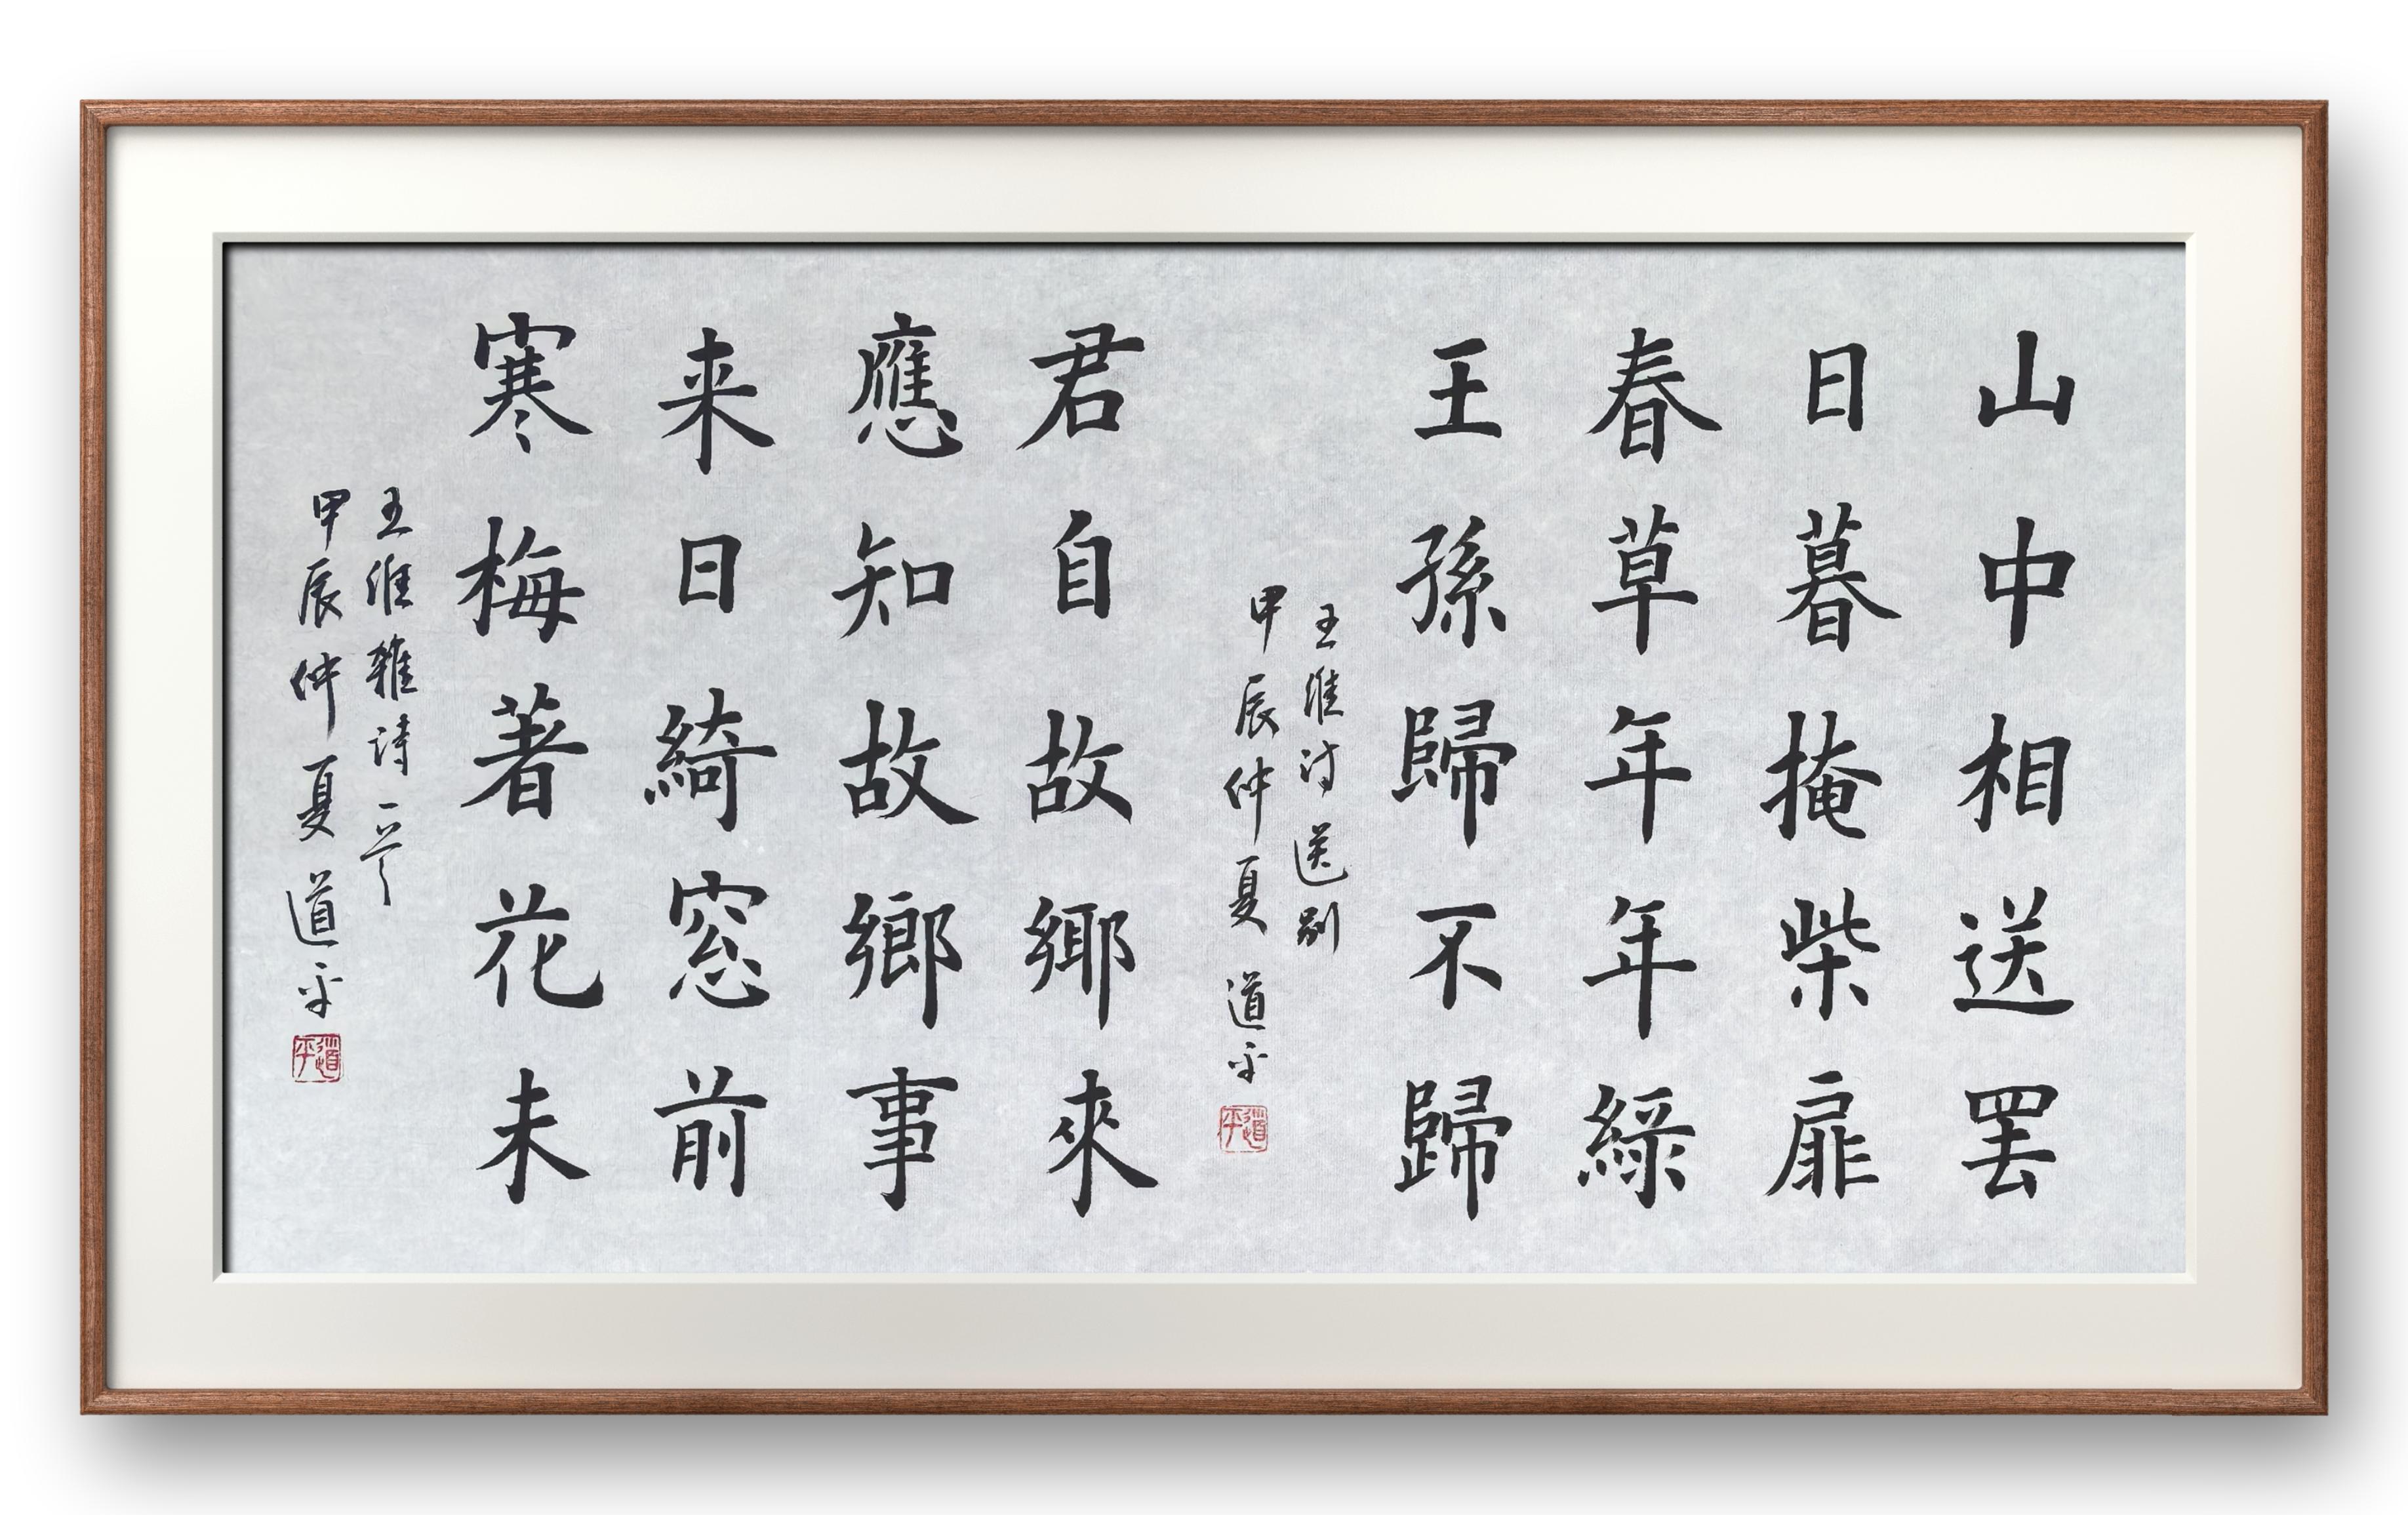 山中相送罷
日暮掩柴扉
春草年年綠
王孫歸不歸
王維詩送别
甲辰仲夏 道平
道平
君自故鄉來
應知故鄉事
来日綺窓前
寒梅著花未
王維雜詩一首
甲辰仲夏 道平
道平